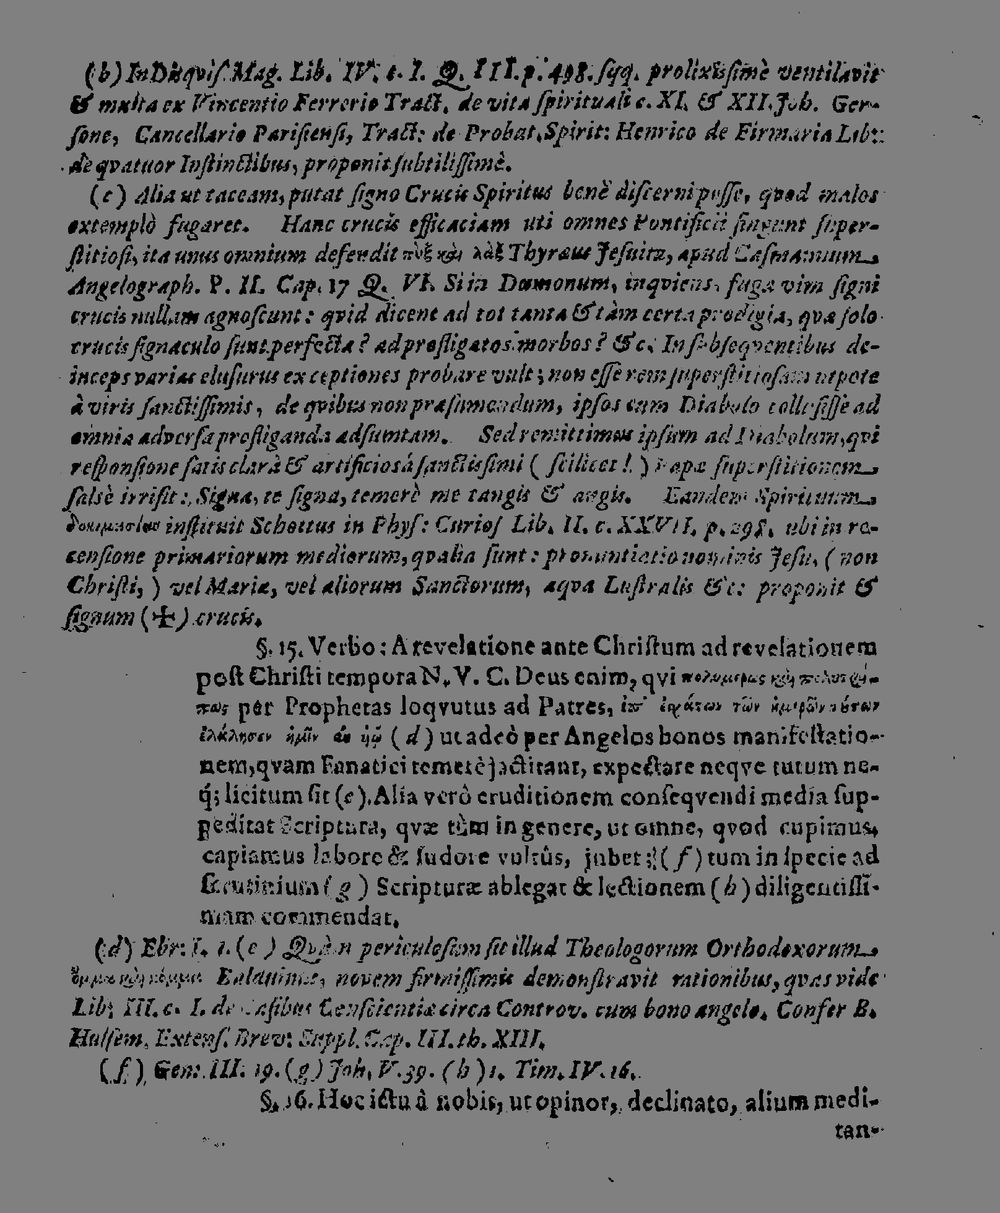 (b) In Disqviſ. Mag. Lib. IV. c. I. Q. III. p. 498. ſqq. prolixiſſimè ventilavit
& multa ex Vincentio Ferrerio Tract. de vita ſpirituali c. XI. & XII. Joh. Ger-
ſone, Cancellario Pariſienſi, Tract: de Probat. Spirit: Henrico de Firmaria Lib:
de qvatuor Inſtinctibus, proponit ſubtiliſſimè.
(c) Alia ut taceam, putat ſigno Crucis Spiritus benè diſcerni poſſe, qvod malos
extemplò fugaret. Hanc crucis efficaciam uti omnes Pontificii fingunt ſuper-
ſtitioſi, ita unus omnium defendit πὺξ καὶ λὰξ Thyræus Jeſuita, apud Caſmannum
Angelograph. P. II. Cap. 17 Q. VI. Si in Dæmonum, inqviens, fuga vim ſigni
crucis nullam agnoſcunt: qvid dicent ad tot tanta & tàm certa prodigia, qvæ ſolo
crucis ſignaculo ſunt perfecta? ad profligatos morbos? &c. In ſubſeqventibus de-
inceps varias eluſurus exceptiones probare vult; non eſſe rem ſuperſtitioſam utpote
à viris ſanctiſſimis, de qvibus non præſumendum, ipſos cum Diabolo colluſiſſe ad
omnia adverſa profliganda adſumtam. Sed remittimus ipſum ad Diabolum, qvi
reſponſione ſatis clarâ & artificiosâ ſanctiſſimi (ſcilicet!) Papæ ſuperſtitionem
falsè irriſit: Signa, te ſigna, temerè me tangis & angis. Eandem Spirituum
δοκιμασίαν inſtituit Schottus in Phyſ: Curioſ Lib. II. c. XXVII. p. 298. ubi in re-
cenſione primariorum mediorum, qvalia ſunt: pronuntiatio nominis Jeſu, (non
Chriſti,) vel Mariæ, vel aliorum Sanctorum, aqva Luſtralis &c: proponit &
ſignum (✠) crucis.
§. 15. Verbo: A revelatione ante Chriſtum ad revelationem
poſt Chriſti tempora N. V. C. Deus enim, qvi πολυμερῶς καὶ πολυτρό-
πως per Prophetas loqvutus ad Patres, ἐπ' ἐσχάτων τῶν ἡμερῶν τούτων
ἐλάλησεν ἡμῖν ἐν ὑιῷ (d) ut adeò per Angelos bonos manifeſtatio-
nem, qvam Fanatici temerè jactitant, expectare neqve tutum ne-
q́; licitum ſit (e). Alia verò eruditionem conſeqvendi media ſup-
peditat Scriptura, qvæ tùm in genere, ut omne, qvod cupimus,
capiamus labore & ſudore vultûs, jubet; (f) tum in ſpecie ad
ſcrutinium (g) Scripturæ ablegat & lectionem (h) diligentiſſi-
mam commendat.
(d) Ebr: I. 1. (e) Qvàm periculoſum ſit illud Theologorum Orthodoxorum
Balduinus, novem firmiſſimis demonſtravit rationibus, qvas vide
Lib; III. c. I. de Caſibus Conſcientiæ circa Controv. cum bono angelo. Confer B.
Hülſem. Extenſ. Brev: Suppl. Cap. III. th. XIII.
(f) Gen: III. 19. (g) Joh. V. 39. (h) 1. Tim. IV. 16.
§. 16. Hoc ictu â nobis, ut opinor, declinato, alium medi-
tan-